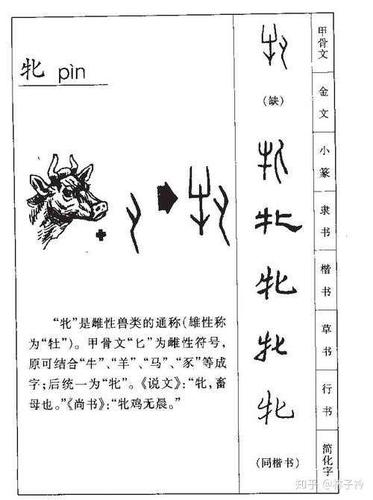 牝 pìn
"牝"是雌性兽类的通称(雄性称
为"牡")。甲骨文"匕"为雌性符号,
原可结合"牛"、"羊"、"马"、"豕"等成
字;后统一为"牝"。《说文》:"牝,畜
母也。"《尚书》:"牝鸡无晨。"
牝
(缺)
牝
牝
牝
牝
牝
(同楷书)
甲骨文
金文
小篆
隶书
楷书
草书
行书
简化字